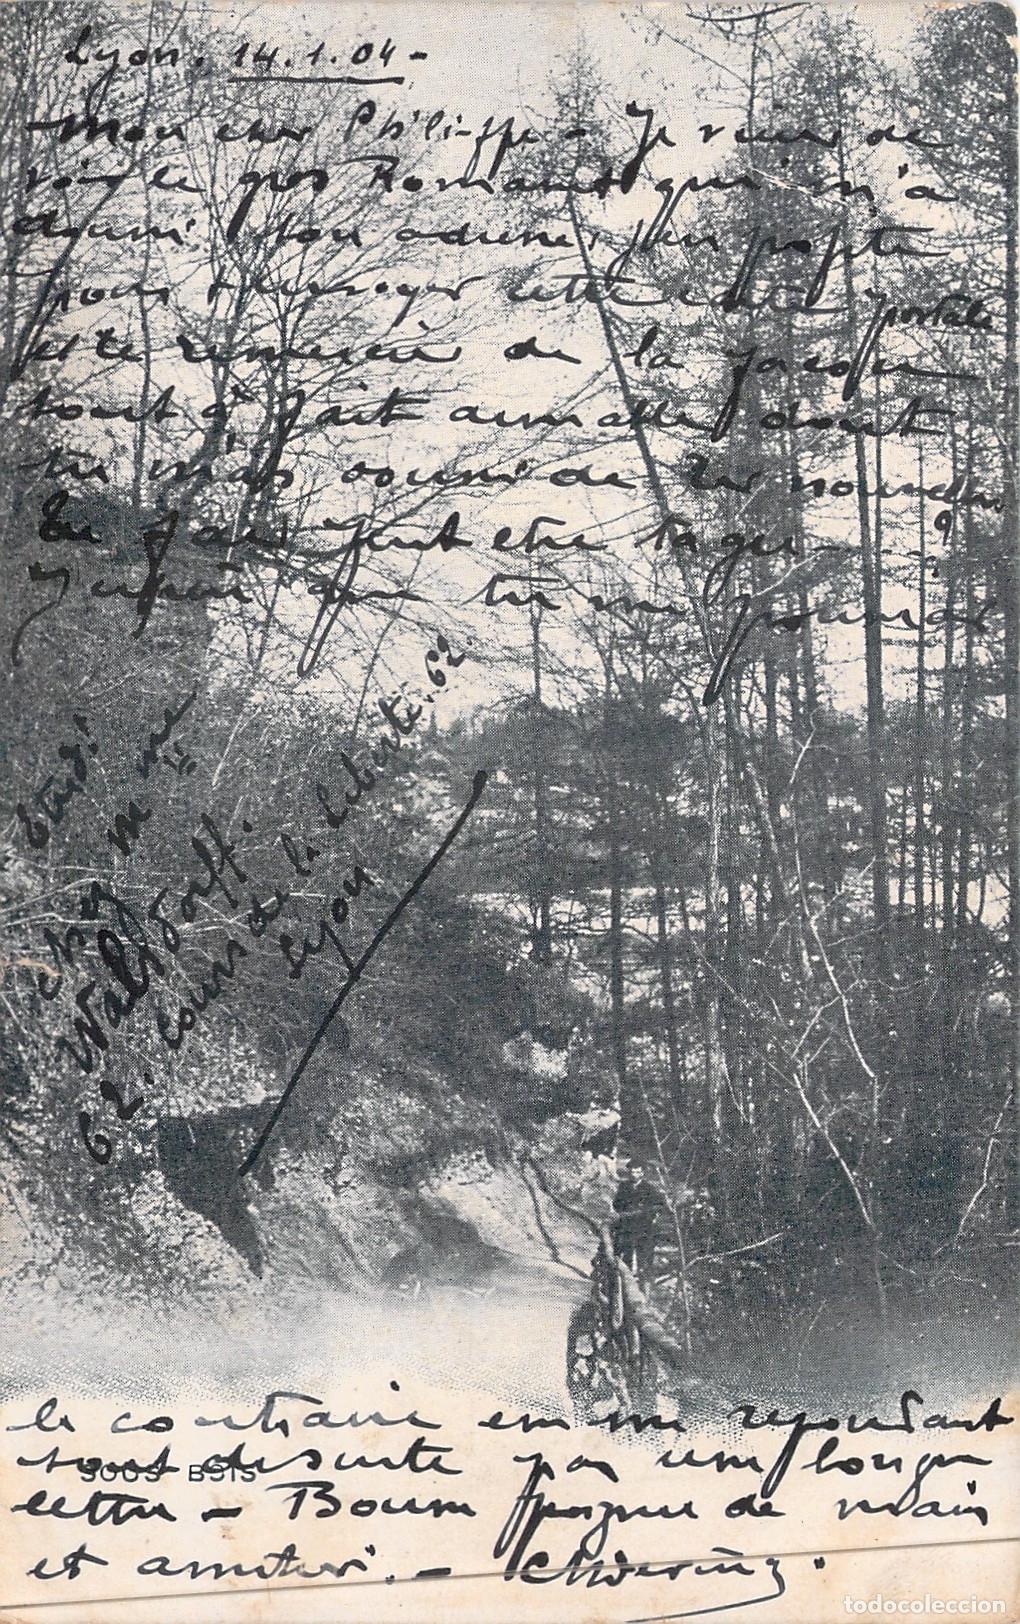 Lyon. 14.1.04 -
Mon cher Philippe - Je viens de
voir le gros Romans qui m'a
donné ton adresse, j'en profite
pour t'envoyer cette carte postale
et te remercier de la façon
tout à fait aimable dont
tu m'as de nouvelles
Tu fais peut être
J' que tu me
le contraire en me répondant
tout de suite par une longue
lettre - Bonne poignée de main
et amitiés. -
SOUS BOIS
Waldorff.
62. cours de la Liberté. 62
Lyon
todocoleccion